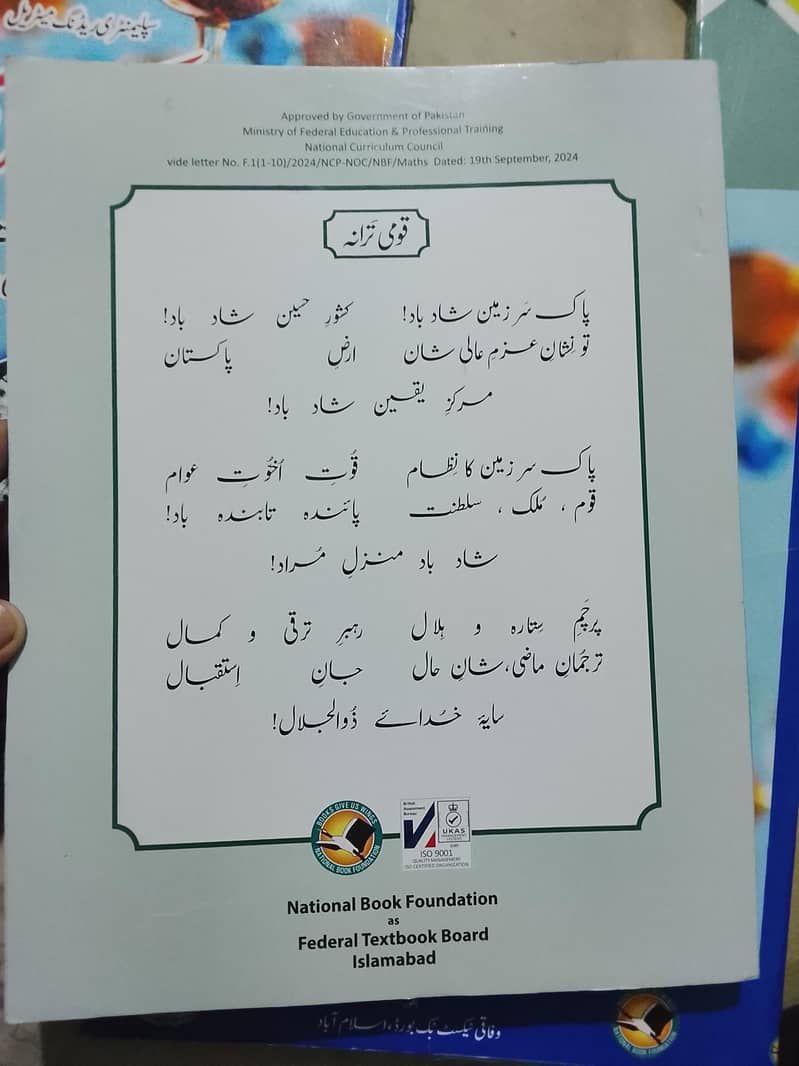 سپلیمنٹری ریڈنگ میٹریل
Approved by Government of Pakistan
Ministry of Federal Education & Professional Training
National Curriculum Council
vide letter No. F.1(1-10)/2024/NCP-NOC/NBF/Maths Dated: 19th September, 2024
قومی تَرانہ
پاک سَر زمین شاد باد! کشورِ حسین شاد باد!
تو نِشانِ عزمِ عالی شان ارضِ پاکستان
مرکزِ یقین شاد باد!
پاک سر زمین کا نِظام قُوتِ اُخُوتِ عوام
قوم ، مُلک ، سلطنت پائندہ تابندہ باد!
شاد باد منزلِ مُراد!
پرچَمِ سِتارہ و ہِلال رہبرِ ترقی و کمال
ترجُمانِ ماضی، شانِ حال جانِ اِستقبال
سایۂ خُدائے ذُوالجلال!
BOOKS GIVE US WINGS
NATIONAL BOOK FOUNDATION
British Assessment Bureau
UKAS
MANAGEMENT SYSTEMS
ISO 9001
QUALITY MANAGEMENT
ISO CERTIFIED ORGANIZATION
National Book Foundation
as
Federal Textbook Board
Islamabad
وفاقی ٹیکسٹ بک بورڈ، اسلام آباد
NATIONAL BOOK FOUNDATION